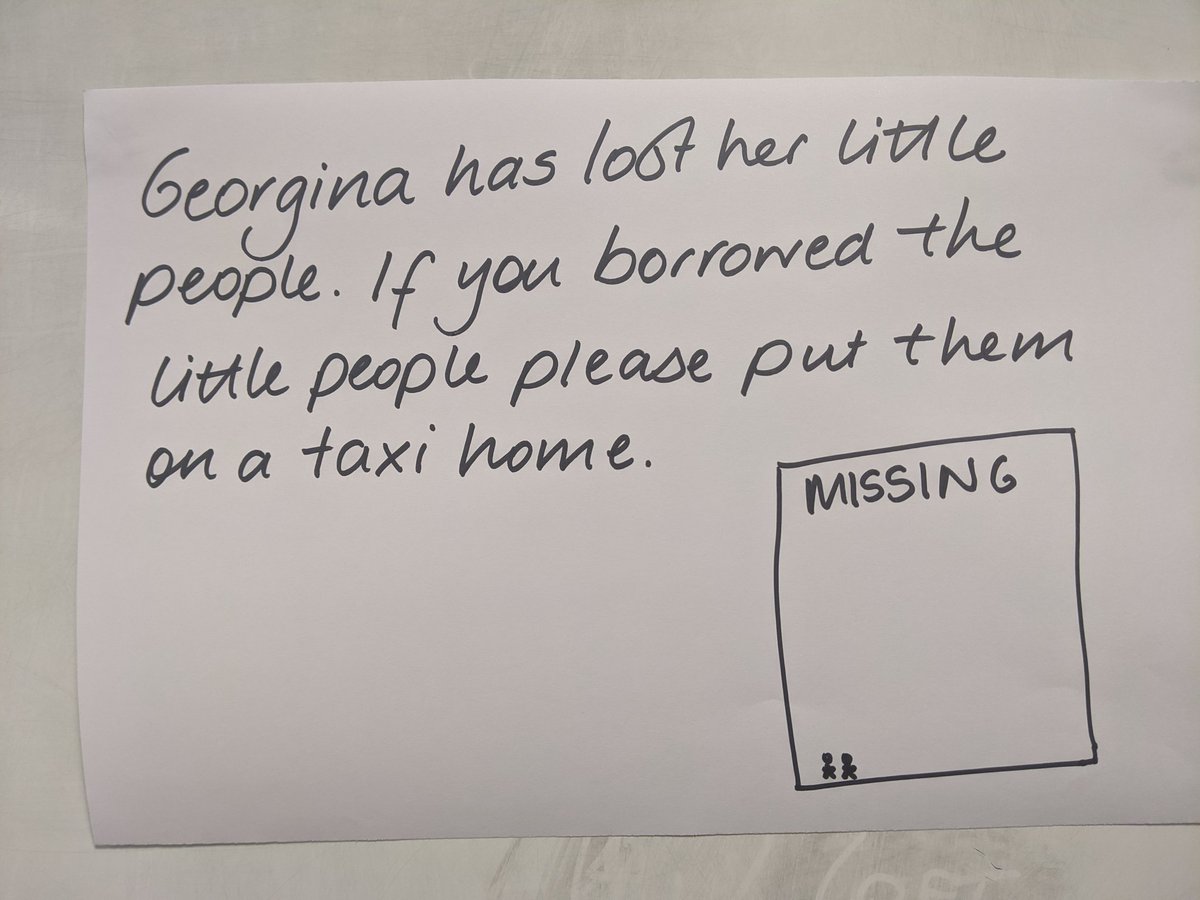 Georgina has lost her little
people. If you borrowed the
little people please put them
on a taxi home.
MISSING